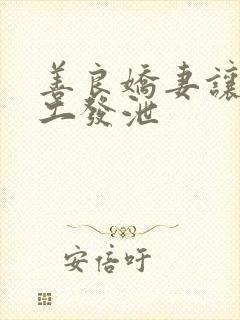 善良嬌妻讓
工發泄
安倍吁